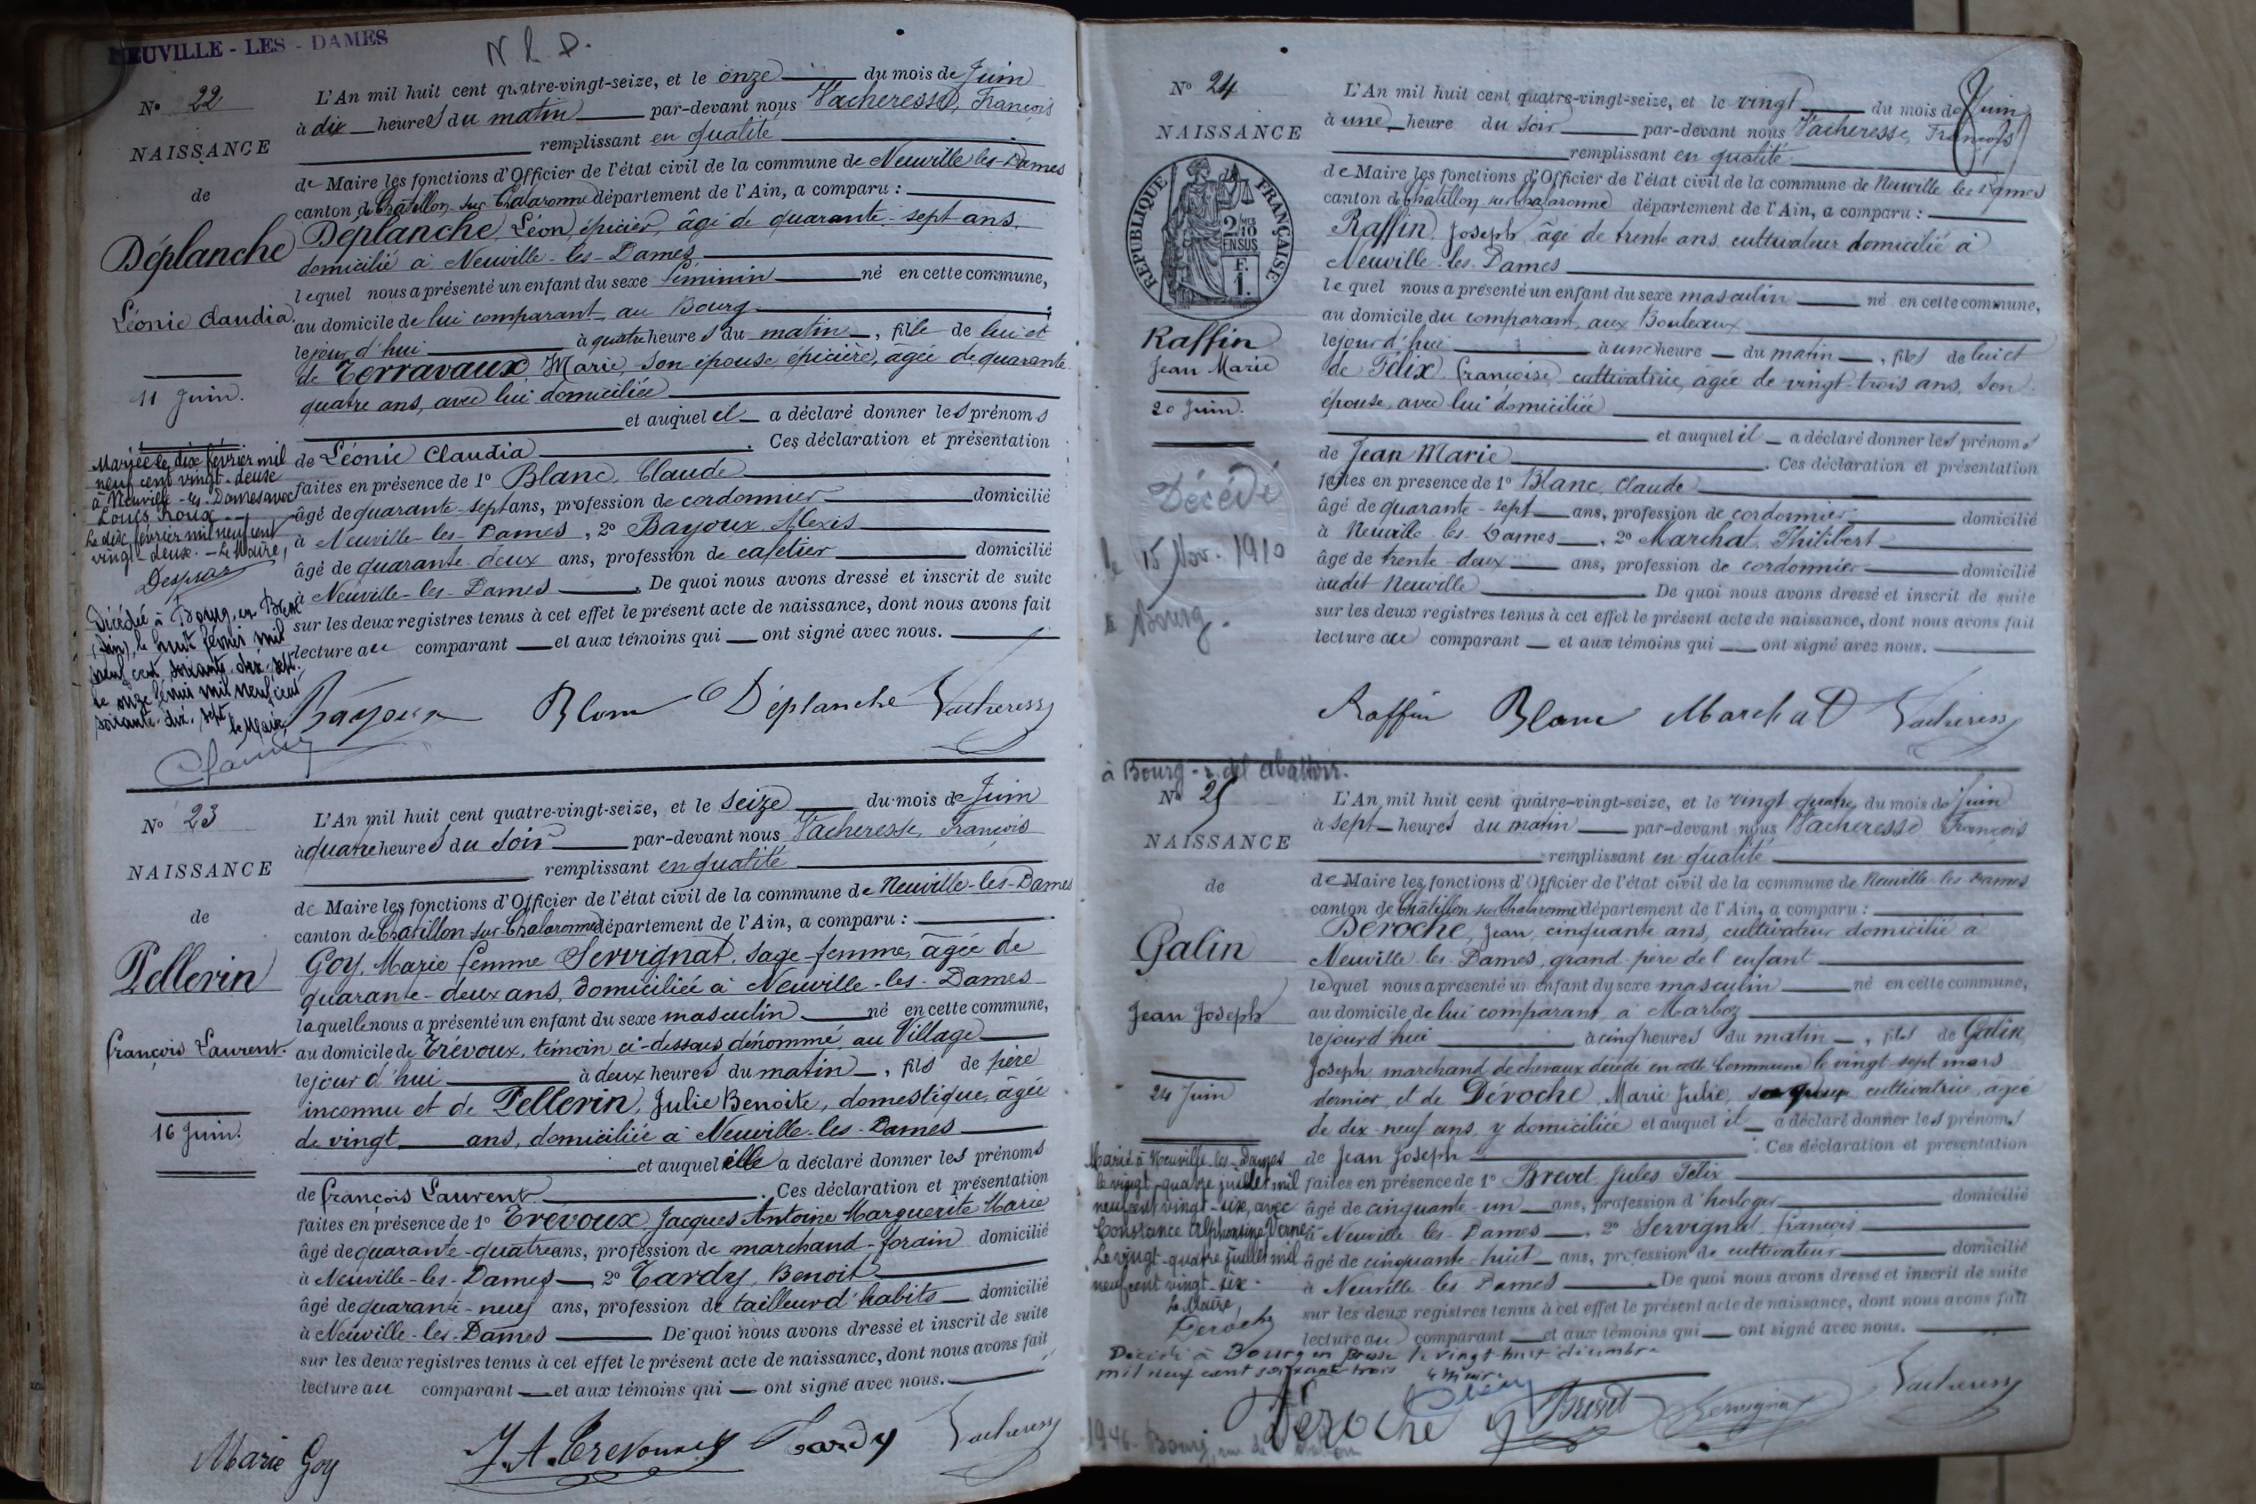 NEUVILLE - LES - DAMES
N L D.
No 22
NAISSANCE
de
Déplanche
Léonie Claudia.
11 Juin.
Mariée le dix février mil
neuf cent vingt-deux
à Neuville-les-Dames avec
Louis Roux
Le dix février mil neuf cent
vingt-deux. - Le Maire,
Décédée à Bourg-en-Bresse
(Ain), le huit février mil
neuf cent soixante-dix-sept.
Le onze février mil neuf cent
soixante-dix-sept
le Maire
L'An mil huit cent quatre-vingt-seize, et le onze du mois de Juin
à dix heures du matin par-devant nous Vacheresse, François
remplissant en qualité
de Maire les fonctions d'Officier de l'état civil de la commune de Neuville-les-Dames
canton de Châtillon-sur-Chalaronne département de l'Ain, a comparu :
Déplanche, Léon, épicier, âgé de quarante-sept ans,
domicilié à Neuville-les-Dames
lequel nous a présenté un enfant du sexe féminin né en cette commune,
au domicile de lui comparant au Bourg
le jour d'hui à quatre heures du matin, fille de lui et
de Terravaux Marie, son épouse, épicière, âgée de quarante-
quatre ans, avec lui domiciliée
et auquel il a déclaré donner les prénoms
de Léonie Claudia. Ces déclaration et présentation
faites en présence de 1o Blanc, Claude
âgé de quarante-sept ans, profession de cordonnier domicilié
à Neuville-les-Dames, 2o Bayoux Alexis
âgé de quarante-deux ans, profession de cafetier domicilié
à Neuville-les-Dames. De quoi nous avons dressé et inscrit de suite
sur les deux registres tenus à cet effet le présent acte de naissance, dont nous avons fait
lecture au comparant et aux témoins qui ont signé avec nous.
Bayoux Blanc Déplanche Vacheresse
No 23
NAISSANCE
de
Pellerin
François Laurent.
16 Juin.
L'An mil huit cent quatre-vingt-seize, et le seize du mois de Juin
à quatre heures du soir par-devant nous Vacheresse, François
remplissant en qualité
de Maire les fonctions d'Officier de l'état civil de la commune de Neuville-les-Dames
canton de Châtillon-sur-Chalaronne département de l'Ain, a comparu :
Goy, Marie femme Servignat, sage-femme, âgée de
quarante-deux ans, domiciliée à Neuville-les-Dames
laquelle nous a présenté un enfant du sexe masculin né en cette commune,
au domicile de Trévoux, témoin ci-dessous dénommé, au Village
le jour d'hui à deux heures du matin, fils de père
inconnu et de Pellerin, Julie Benoite, domestique, âgée
de vingt ans, domiciliée à Neuville-les-Dames
et auquel elle a déclaré donner les prénoms
de François Laurent. Ces déclaration et présentation
faites en présence de 1o Trévoux, Jacques Antoine Marguerite Marie
âgé de quarante-quatre ans, profession de marchand-forain domicilié
à Neuville-les-Dames, 2o Tardy, Benoit
âgé de quarante-neuf ans, profession de tailleur d'habits domicilié
à Neuville-les-Dames De quoi nous avons dressé et inscrit de suite
sur les deux registres tenus à cet effet le présent acte de naissance, dont nous avons fait
lecture au comparant et aux témoins qui ont signé avec nous.
Marie Goy J. A. Trevoux Tardy Vacheresse
No 24
NAISSANCE
RÉPUBLIQUE FRANÇAISE
2/10
EN SUS
F.
1.
Raffin
Jean Marie
20 Juin.
Décédé
le 15 Nov. 1910
à Bourg.
L'An mil huit cent quatre-vingt-seize, et le vingt du mois de Juin
à une heure du soir par-devant nous Vacheresse, François
remplissant en qualité
de Maire les fonctions d'Officier de l'état civil de la commune de Neuville-les-Dames
canton de Châtillon-sur-Chalaronne département de l'Ain, a comparu :
Raffin, Joseph, âgé de trente ans, cultivateur domicilié à
Neuville-les-Dames
lequel nous a présenté un enfant du sexe masculin né en cette commune,
au domicile du comparant, aux Bouleaux
le jour d'hui à une heure du matin, fils de lui et
de Félix, Françoise, cultivatrice, âgée de vingt-trois ans, son
épouse, avec lui domiciliée
et auquel il a déclaré donner les prénoms
de Jean Marie. Ces déclaration et présentation
faites en présence de 1o Blanc, Claude
âgé de quarante-sept ans, profession de cordonnier domicilié
à Neuville-les-Dames, 2o Marchat, Philibert
âgé de trente-deux ans, profession de cordonnier domicilié
audit Neuville De quoi nous avons dressé et inscrit de suite
sur les deux registres tenus à cet effet le présent acte de naissance, dont nous avons fait
lecture au comparant et aux témoins qui ont signé avec nous.
Raffin Blanc Marchat Vacheresse
à Bourg - r. de l'abattoir.
No 25
NAISSANCE
de
Galin
Jean Joseph
24 Juin
Marié à Neuville-les-Dames
le vingt-quatre juillet mil
neuf cent vingt-six, avec
Constance Alphonsine Verne
Le vingt-quatre juillet mil
neuf cent vingt-six.
Le Maire,
Deroche
L'An mil huit cent quatre-vingt-seize, et le vingt quatre du mois de Juin
à sept heures du matin par-devant nous Vacheresse François
remplissant en qualité
de Maire les fonctions d'Officier de l'état civil de la commune de Neuville-les-Dames
canton de Châtillon-sur-Chalaronne département de l'Ain, a comparu :
Déroche, Jean, cinquante ans, cultivateur domicilié à
Neuville-les-Dames, grand-père de l'enfant
lequel nous a présenté un enfant du sexe masculin né en cette commune,
au domicile de lui comparant, à Marboz
le jour d'hui à cinq heures du matin, fils de Galin,
Joseph, marchand de chevaux décédé en cette commune le vingt-sept mars
dernier, et de Déroche, Marie Julie, cultivatrice, âgée
de dix-neuf ans, y domiciliée et auquel il a déclaré donner les prénoms
de Jean Joseph. Ces déclaration et présentation
faites en présence de 1o Brevet, Jules Félix
âgé de cinquante-un ans, profession d'horloger domicilié
à Neuville-les-Dames, 2o Servignat, François
âgé de cinquante-huit ans, profession de cultivateur domicilié
à Neuville-les-Dames De quoi nous avons dressé et inscrit de suite
sur les deux registres tenus à cet effet le présent acte de naissance, dont nous avons fait
lecture au comparant et aux témoins qui ont signé avec nous.
Décédé à Bourg en Bresse le vingt-huit décembre
mil neuf cent soixante-trois le Maire
Déroche J Brevet Servignat Vacheresse
1946 - Bourg, rue de